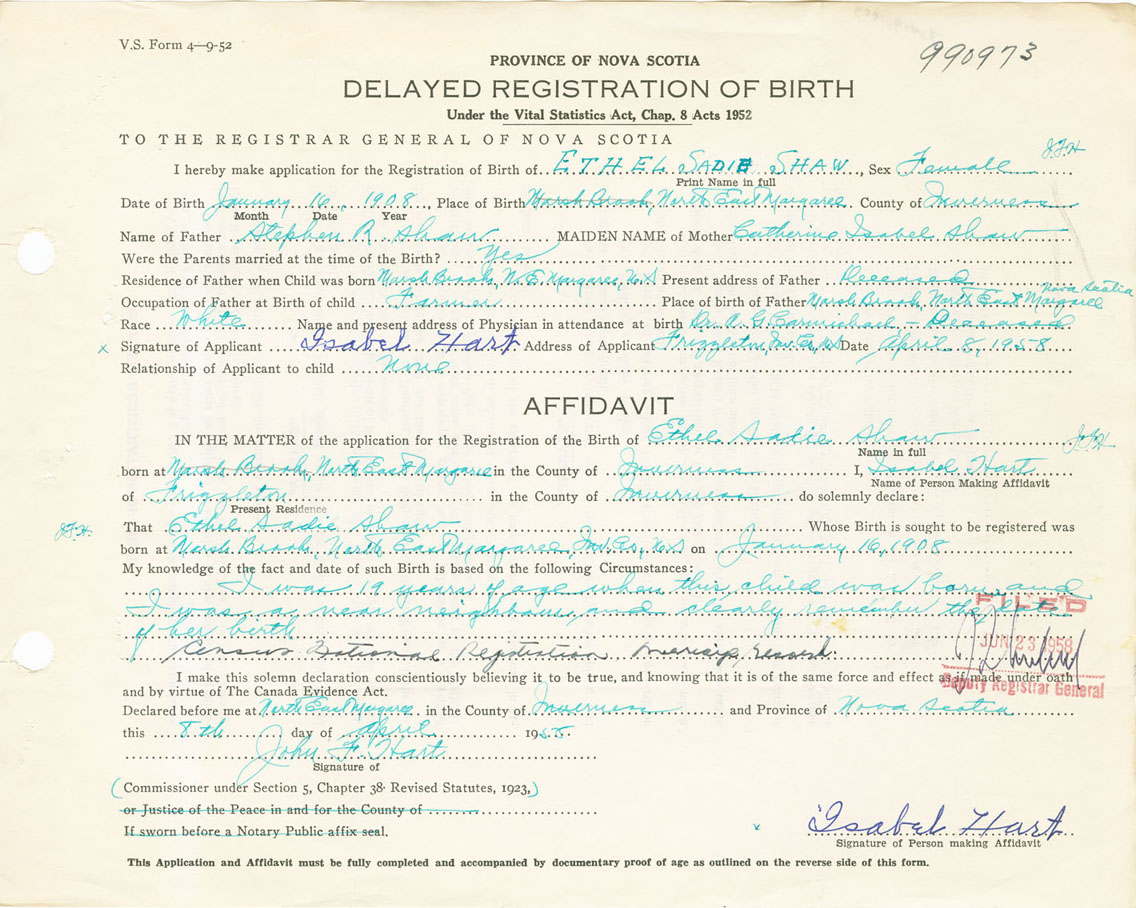 V.S. Form 4—9-52
990973
PROVINCE OF NOVA SCOTIA
DELAYED REGISTRATION OF BIRTH
Under the Vital Statistics Act, Chap. 8 Acts 1952
TO THE REGISTRAR GENERAL OF NOVA SCOTIA
J.F.H
I hereby make application for the Registration of Birth of ETHEL SADIE SHAW, Sex Female
Print Name in full
Date of Birth January 16, 1908, Place of Birth Marsh Brook, North East Margaree County of Inverness
Month Date Year
Name of Father Stephen R. Shaw MAIDEN NAME of Mother Catherine Isabel Shaw
Were the Parents married at the time of the Birth? Yes
Residence of Father when Child was born Marsh Brook, N.E. Margaree, N.S Present address of Father Deceased
Nova Scotia
Occupation of Father at Birth of child Farmer Place of birth of Father Marsh Brook, North East Margaree
Race White Name and present address of Physician in attendance at birth Dr. A. G. Carmichael — Deceased
x Signature of Applicant Isabel Hart Address of Applicant Frizzleton, Inv. Co., N.S Date April 8, 1958
Relationship of Applicant to child None
AFFIDAVIT
IN THE MATTER of the application for the Registration of the Birth of Ethel Sadie Shaw J.F.H
Name in full
born at Marsh Brook, North East Margaree in the County of Inverness I, Isabel Hart
Name of Person Making Affidavit
of Frizzleton in the County of Inverness do solemnly declare:
Present Residence
J.F.H. That Ethel Sadie Shaw Whose Birth is sought to be registered was
born at Marsh Brook, North East Margaree, Inv. Co., N.S on January 16, 1908
My knowledge of the fact and date of such Birth is based on the following Circumstances:
I was 19 years of age when this child was born, and
I was a near neighbour, and clearly remember the date
of her birth
FILED
JUN 23 1958
Census National Registration record
Deputy Registrar General
I make this solemn declaration conscientiously believing it to be true, and knowing that it is of the same force and effect as if made under oath
and by virtue of The Canada Evidence Act.
Declared before me at North East Margaree in the County of Inverness and Province of Nova Scotia
this 8th day of April 1958.
John F. Hart
Signature of
(Commissioner under Section 5, Chapter 38 Revised Statutes, 1923,)
or Justice of the Peace in and for the County of
If sworn before a Notary Public affix seal.
x Isabel Hart
Signature of Person making Affidavit
This Application and Affidavit must be fully completed and accompanied by documentary proof of age as outlined on the reverse side of this form.